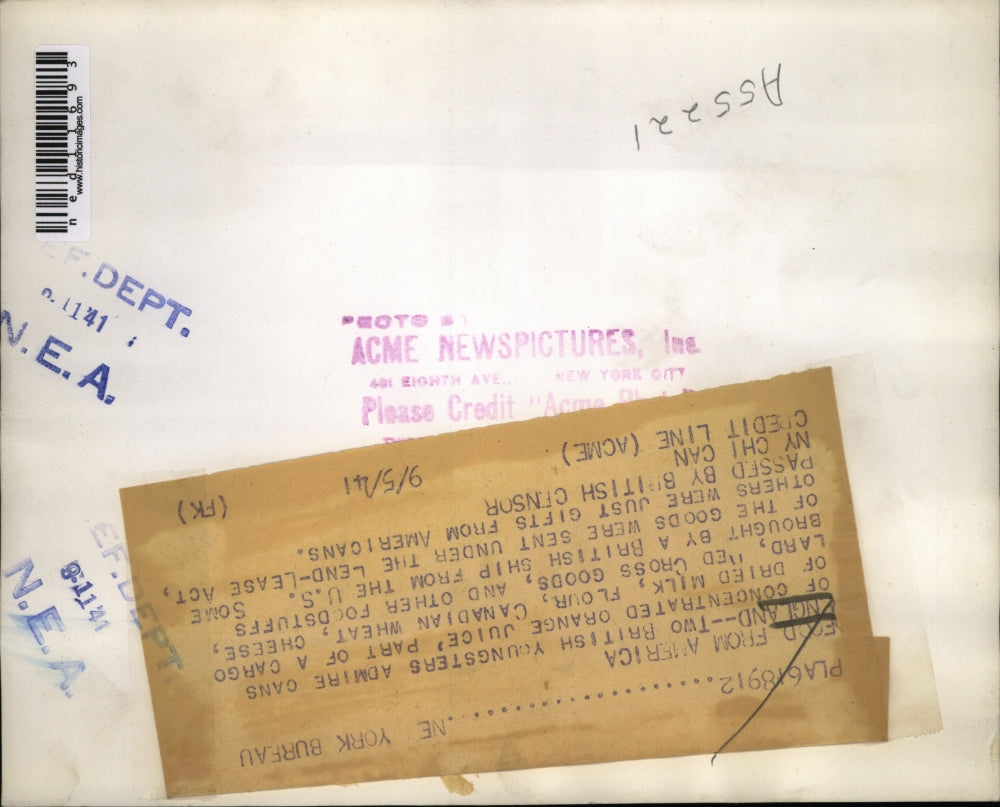 ned11693
www.historicimages.com
A55221
EF. DEPT.
9-11'41
N.E.A.
PHOTO BY
ACME NEWSPICTURES, Inc.
461 EIGHTH AVE., NEW YORK CITY
Please Credit "Acme
EF. DEPT.
9-11'41
N.E.A.
PLA618912....................NE YORK BUREAU
FOOD FROM AMERICA
ENGLAND--TWO BRITISH YOUNGSTERS ADMIRE CANS
OF CONCENTRATED ORANGE JUICE, PART OF A CARGO
OF DRIED MILK, FLOUR, CANADIAN WHEAT, CHEESE,
LARD, RED CROSS GOODS, AND OTHER FOODSTUFFS
BROUGHT BY A BRITISH SHIP FROM THE U.S. SOME
OF THE GOODS WERE SENT UNDER THE LEND-LEASE ACT,
OTHERS WERE JUST GIFTS FROM AMERICANS.
PASSED BY BRITISH CENSOR
NY CHI CAN
CREDIT LINE (ACME) 9/5/41 (FK)